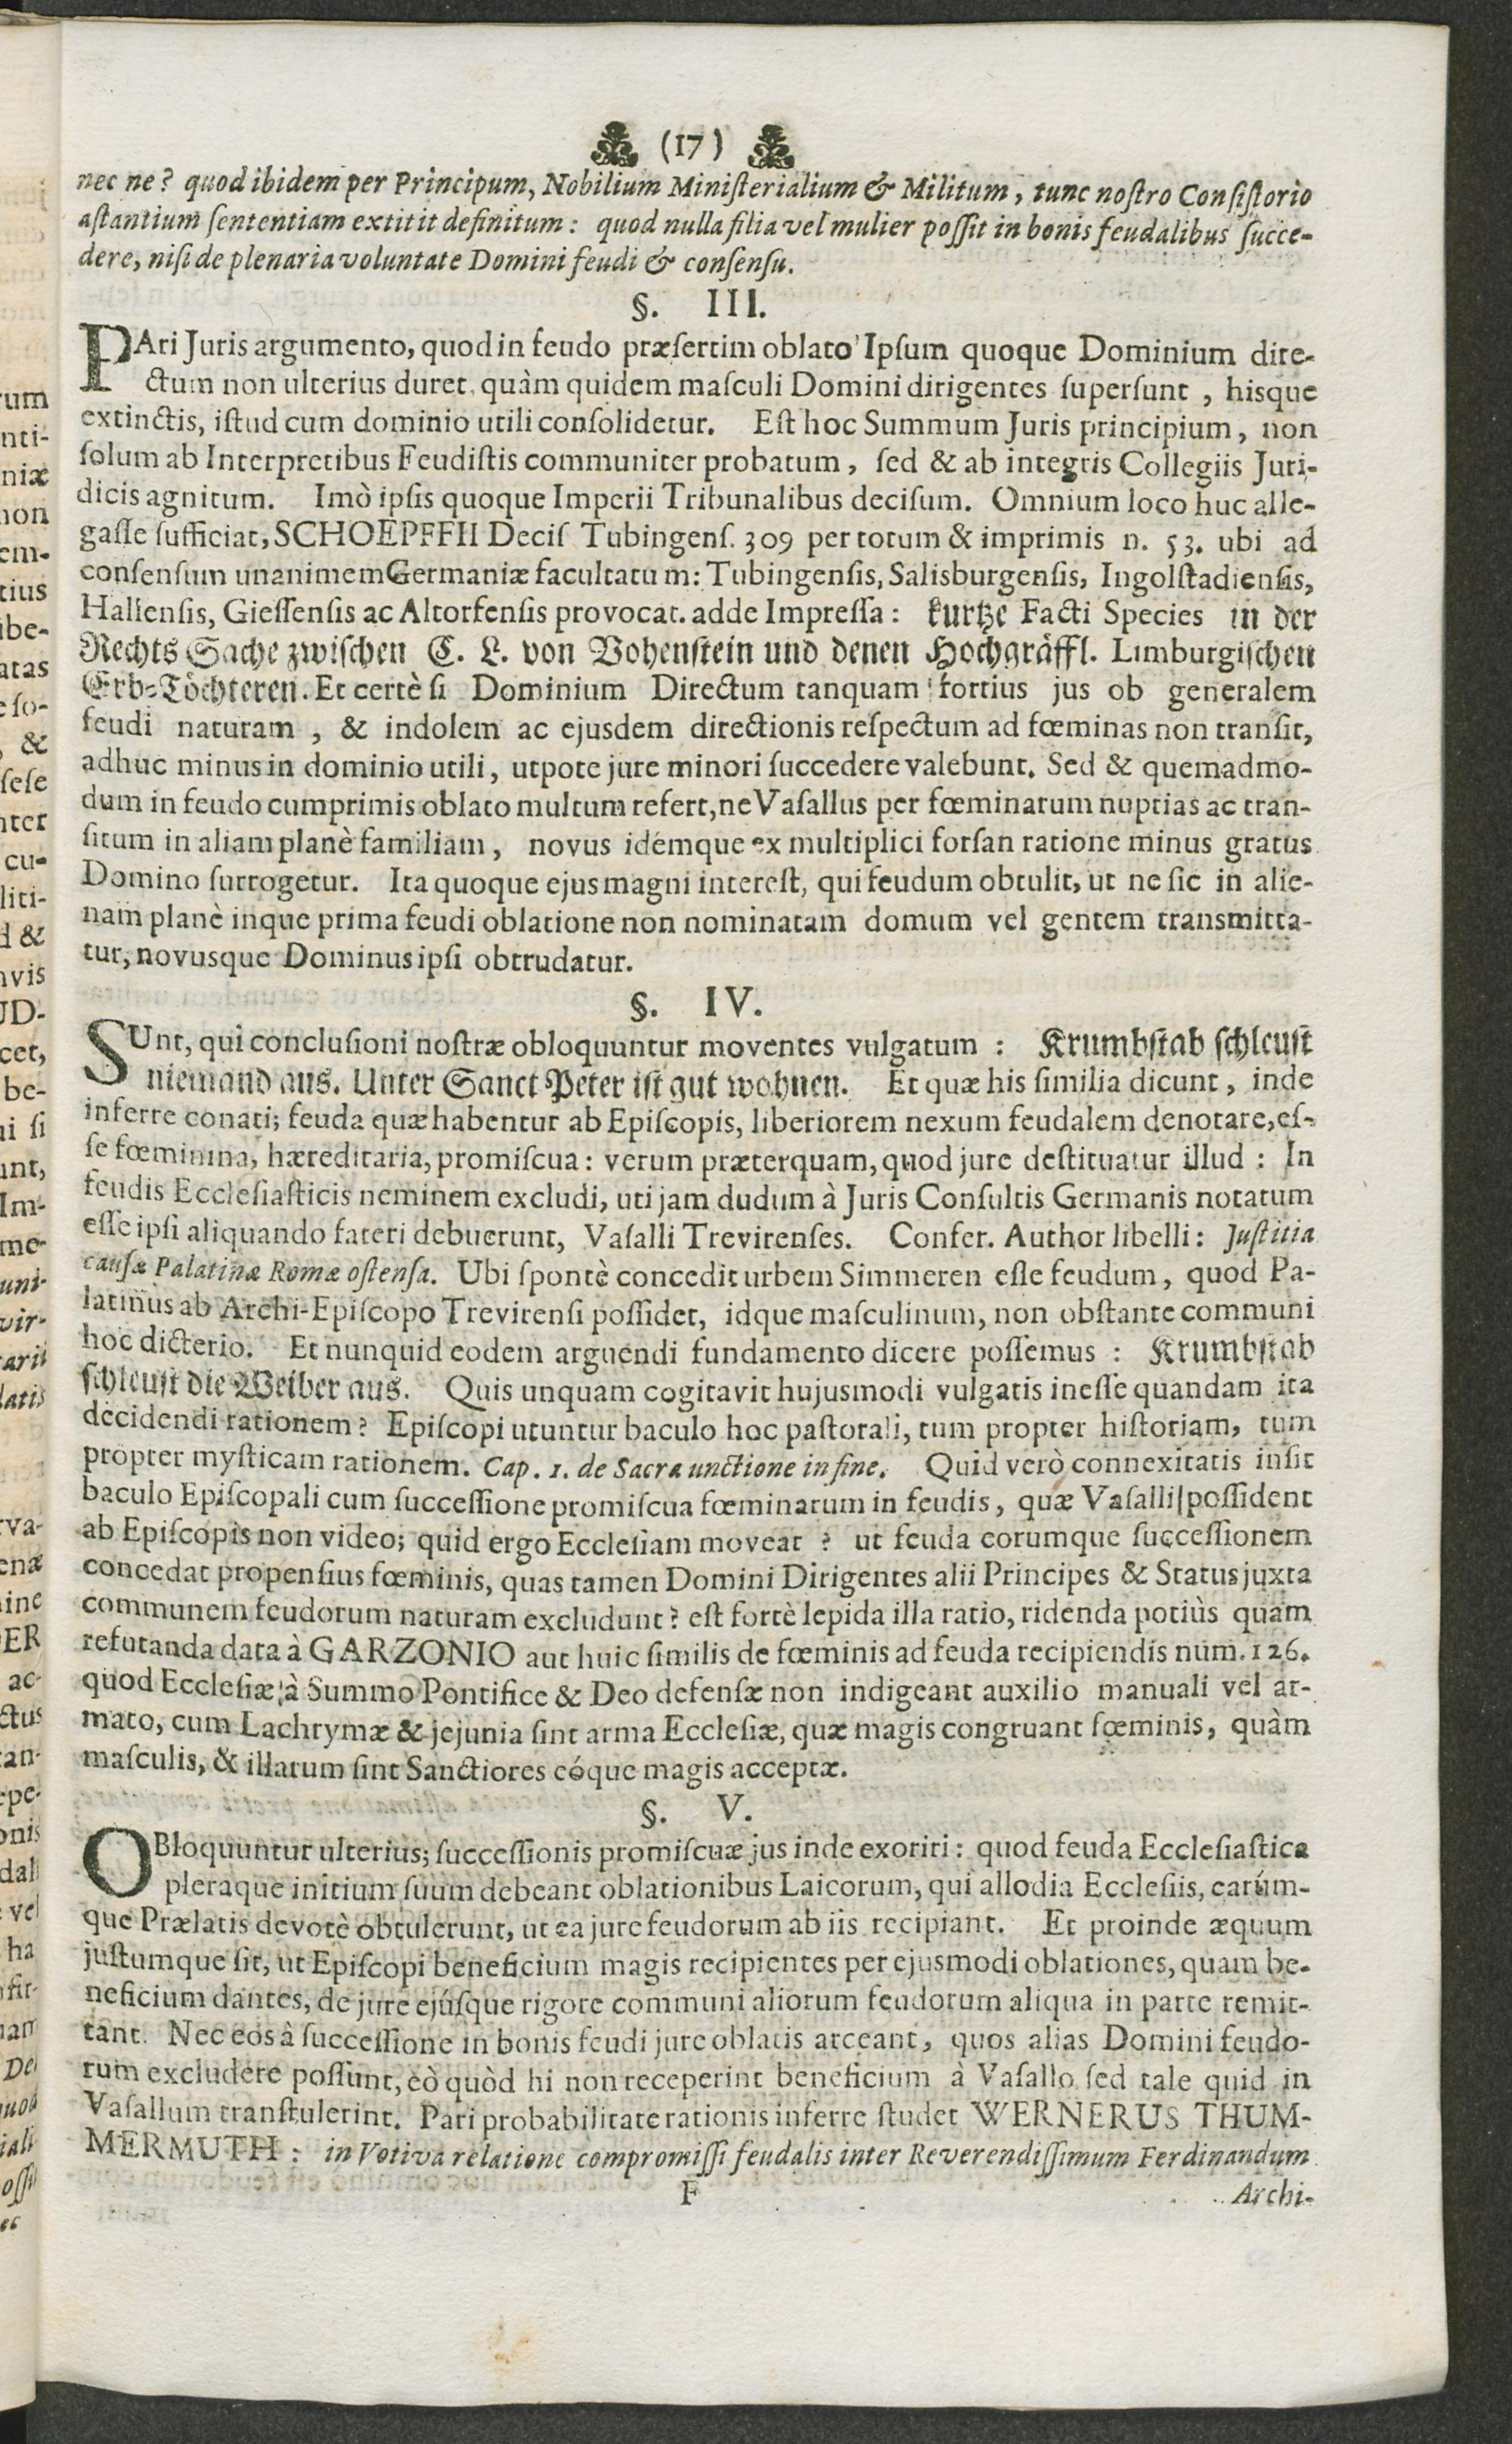 (17)
nec ne? quod ibidem per Principum, Nobilium Ministerialium & Militum, tunc nostro Consistorio
astantium sententiam extitit definitum: quod nulla filia vel mulier possit in bonis feudalibus succe-
dere, nisi de plenaria voluntate Domini feudi & consensu.
§. III.
PAri Juris argumento, quod in feudo præsertim oblato Ipsum quoque Dominium dire-
ctum non ulterius duret, quàm quidem masculi Domini dirigentes supersunt, hisque
extinctis, istud cum dominio utili consolidetur. Est hoc Summum Juris principium, non
solum ab Interpretibus Feudistis communiter probatum, sed & ab integris Collegiis Juri-
dicis agnitum. Imò ipsis quoque Imperii Tribunalibus decisum. Omnium loco huc alle-
gasse sufficiat, SCHOEPFFII Decis Tubingens. 309 per totum & imprimis n. 53. ubi ad
consensum unanimem Germaniæ facultatum: Tubingensis, Salisburgensis, Ingolstadiensis,
Hallensis, Giessensis ac Altorfensis provocat. adde Impressa: kurtze Facti Species in der
Rechts Sache zwischen C. L. von Vohenstein und denen Hochgräffl. Limburgischen
Erb-Töchteren. Et certè si Dominium Directum tanquam fortius jus ob generalem
feudi naturam, & indolem ac ejusdem directionis respectum ad fœminas non transit,
adhuc minus in dominio utili, utpote jure minori succedere valebunt. Sed & quemadmo-
dum in feudo cumprimis oblato multum refert, ne Vasallus per fœminarum nuptias ac tran-
situm in aliam planè familiam, novus idémque ex multiplici forsan ratione minus gratus
Domino surrogetur. Ita quoque ejus magni interest, qui feudum obtulit, ut ne sic in alie-
nam planè inque prima feudi oblatione non nominatam domum vel gentem transmitta-
tur, novusque Dominus ipsi obtrudatur.
§. IV.
SUnt, qui conclusioni nostræ obloquuntur moventes vulgatum: Krumbstab schleust
niemand aus. Unter Sanct Peter ist gut wohnen. Et quæ his similia dicunt, inde
inferre conati; feuda quæ habentur ab Episcopis, liberiorem nexum feudalem denotare, es-
se fœminina, hæreditaria, promiscua: verum præterquam, quod jure destituatur illud: In
feudis Ecclesiasticis neminem excludi, uti jam dudum à Juris Consultis Germanis notatum
esse ipsi aliquando fateri debuerunt, Vasalli Trevirenses. Confer. Author libelli: Justitia
causæ Palatinæ Romæ ostensa. Ubi spontè concedit urbem Simmeren esse feudum, quod Pa-
latinus ab Archi-Episcopo Trevirensi possidet, idque masculinum, non obstante communi
hoc dicterio. Et nunquid eodem arguendi fundamento dicere possemus: Krumbstab
schleust die Weiber aus. Quis unquam cogitavit hujusmodi vulgatis inesse quandam ita
decidendi rationem? Episcopi utuntur baculo hoc pastorali, tum propter historiam, tum
propter mysticam rationem. Cap. 1. de Sacra unctione in fine. Quid verò connexitatis insit
baculo Episcopali cum successione promiscua fœminarum in feudis, quæ Vasalli possident
ab Episcopis non video; quid ergo Ecclesiam moveat? ut feuda eorumque successionem
concedat propensius fœminis, quas tamen Domini Dirigentes alii Principes & Status juxta
communem feudorum naturam excludunt? est fortè lepida illa ratio, ridenda potiùs quam
refutanda data à GARZONIO aut huic similis de fœminis ad feuda recipiendis num. 126.
quod Ecclesiæ à Summo Pontifice & Deo defensæ non indigeant auxilio manuali vel ar-
mato, cum Lachrymæ & jejunia sint arma Ecclesiæ, quæ magis congruant fœminis, quàm
masculis, & illarum sint Sanctiores eóque magis acceptæ.
§. V.
OBloquuntur ulterius; successionis promiscuæ jus inde exoriri: quod feuda Ecclesiastica
pleraque initium suum debeant oblationibus Laicorum, qui allodia Ecclesiis, earúm-
que Prælatis devotè obtulerunt, ut ea jure feudorum ab iis recipiant. Et proinde æquum
justumque sit, ut Episcopi beneficium magis recipientes per ejusmodi oblationes, quam be-
neficium dantes, de jure ejúsque rigore communi aliorum feudorum aliqua in parte remit-
tant. Nec eos à successione in bonis feudi jure oblatis arceant, quos alias Domini feudo-
rum excludere possunt, eò quòd hi non receperint beneficium à Vasallo sed tale quid in
Vasallum transtulerint. Pari probabilitate rationis inferre studet WERNERUS THUM-
MERMUTH: in Votiva relatione compromissi feudalis inter Reverendissimum Ferdinandum
F Archi-